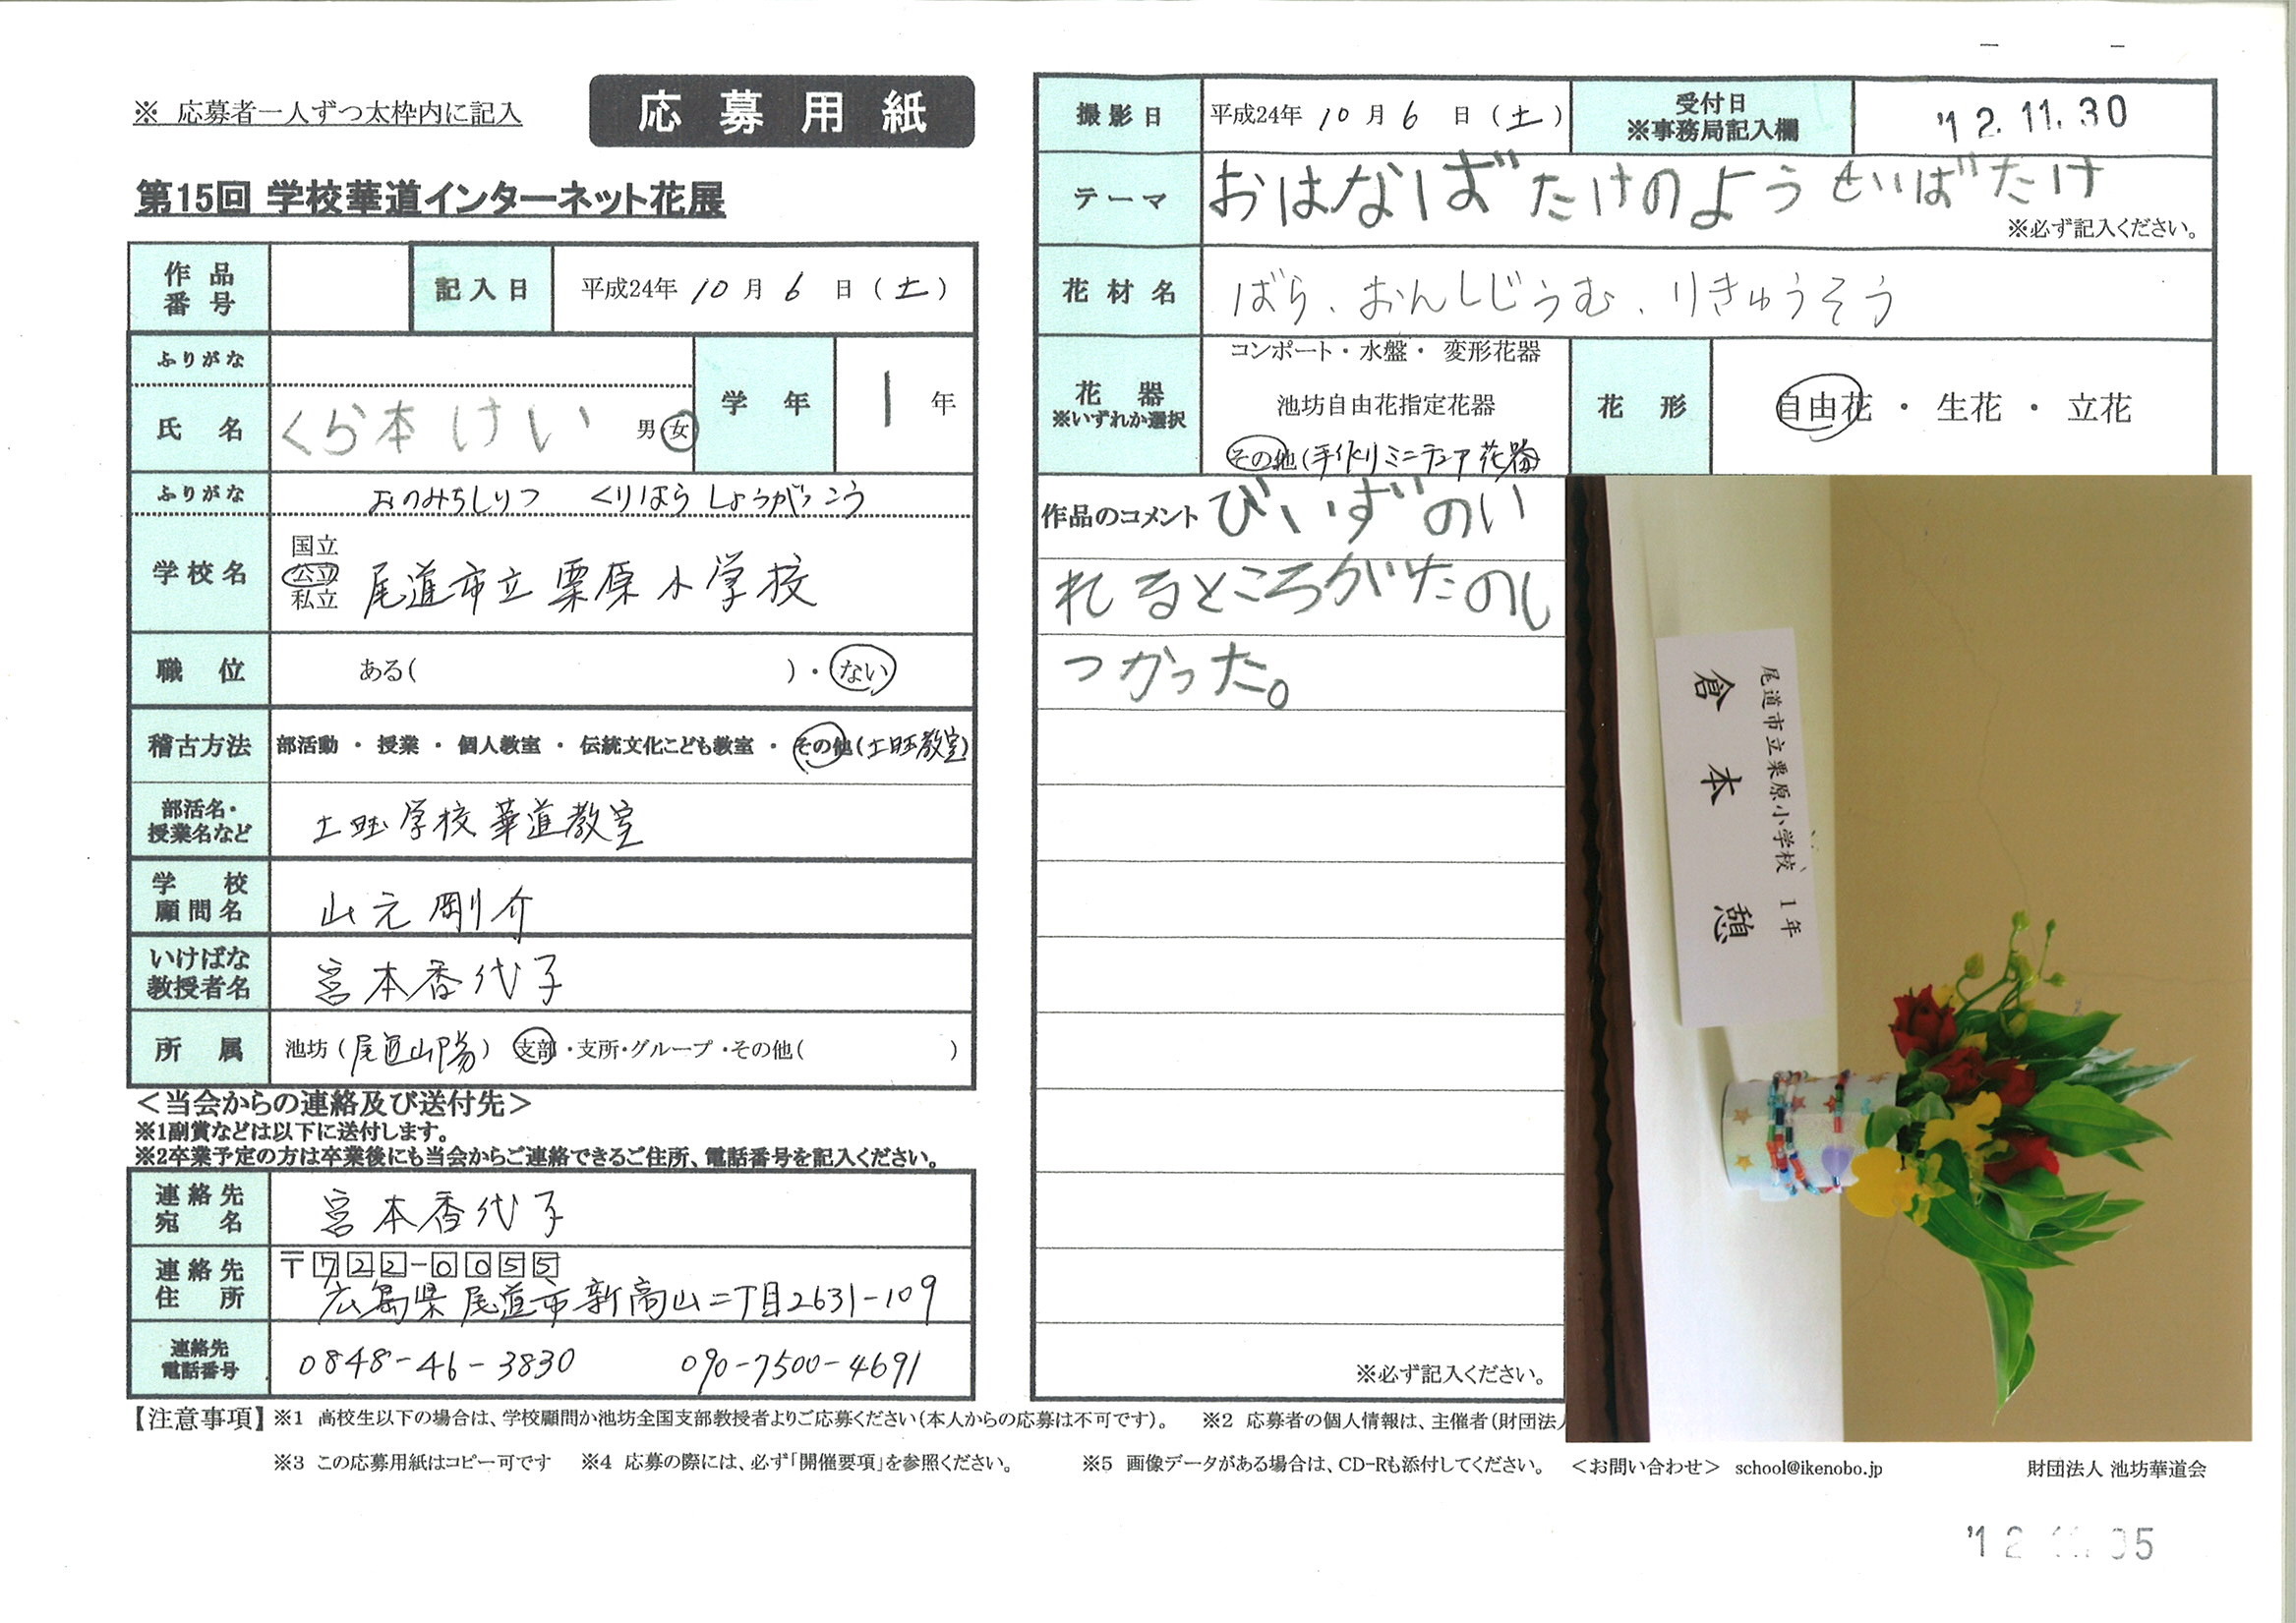 ※ 応募者一人ずつ太枠内に記入
応募用紙
第15回 学校華道インターネット花展
作品番号
記入日 平成24年 10月 6日(土)
ふりがな
氏名 くら本けい 男・女
学年 1年
ふりがな おのみちしりつ くりはらしょうがっこう
学校名 国立 公立 私立 尾道市立栗原小学校
職位 ある( )・ない
稽古方法 部活動 ・ 授業 ・ 個人教室 ・ 伝統文化こども教室 ・ その他(土旺教室)
部活名・授業名など 土旺学校華道教室
学校顧問名 山元剛介
いけばな教授者名 宮本香代子
所属 池坊(尾道山陽)支部・支所・グループ・その他( )
＜当会からの連絡及び送付先＞
※1副賞などは以下に送付します。
※2卒業予定の方は卒業後にも当会からご連絡できるご住所、電話番号を記入ください。
連絡先宛名 宮本香代子
連絡先住所 〒722-0055
広島県尾道市新高山二丁目2631-109
連絡先電話番号 0848-46-3830 090-7500-4691
撮影日 平成24年 10月 6日(土)
受付日 ※事務局記入欄 '12.11.30
テーマ おはなばたけのよう
※必ず記入ください。
花材名 ばら、おんしじうむ、りきゅうそう
花器 ※いずれか選択
コンポート・水盤・ 変形花器
池坊自由花指定花器
その他(手作りミニチュア花器)
花形 自由花 ・ 生花 ・ 立花
作品のコメント びいずのい
れるところがたのし
つかった。
※必ず記入ください。
尾道市立栗原小学校 1年
倉本 憩
【注意事項】 ※1 高校生以下の場合は、学校顧問か池坊全国支部教授者よりご応募ください(本人からの応募は不可です)。 ※2 応募者の個人情報は、主催者(財団法人
※3 この応募用紙はコピー可です ※4 応募の際には、必ず「開催要項」を参照ください。 ※5 画像データがある場合は、CD-Rも添付してください。 ＜お問い合わせ＞ school@ikenobo.jp 財団法人 池坊華道会